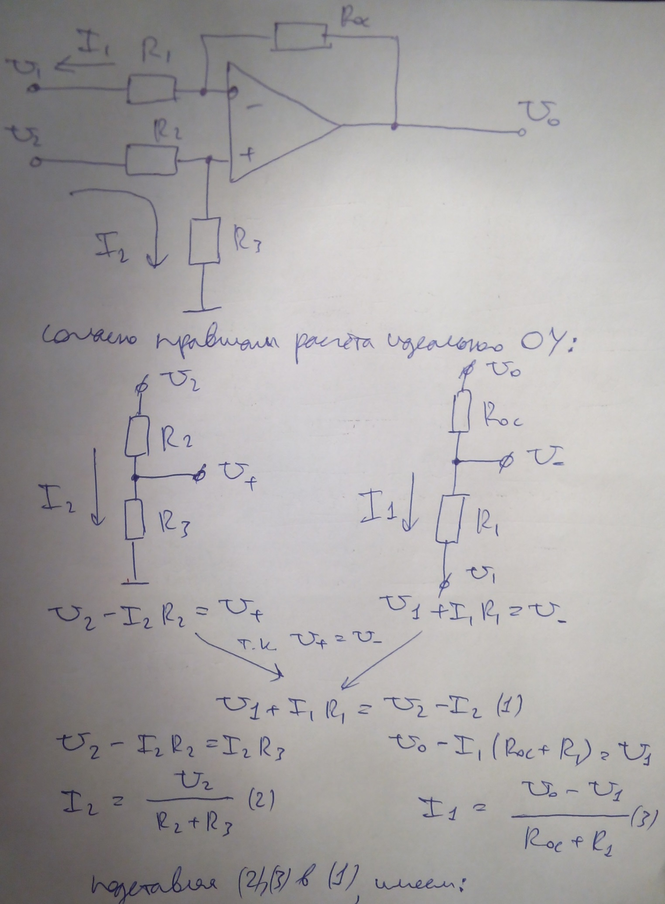 I₁ R₁ Rос
U₁
U₂ R₂ − U₀
+
I₂ R₃
согласно правилам расчёта идеального ОУ:
U₂ U₀
R₂ Rос
U₊ U₋
I₂ R₃ I1 R₁
U₁
U₂ − I₂R₂ = U₊ U₁ + I₁R₁ = U₋
т.к. U₊ = U₋
U₁ + I₁R₁ = U₂ − I₂ (1)
U₂ − I₂R₂ = I₂R₃ U₀ − I₁(Rос + R₁) = U₁
I₂ = U₂ / (R₂ + R₃) (2) I1 = (U₀ − U₁) / (Rос + R₁) (3)
подставляя (2),(3) в (1), имеем: